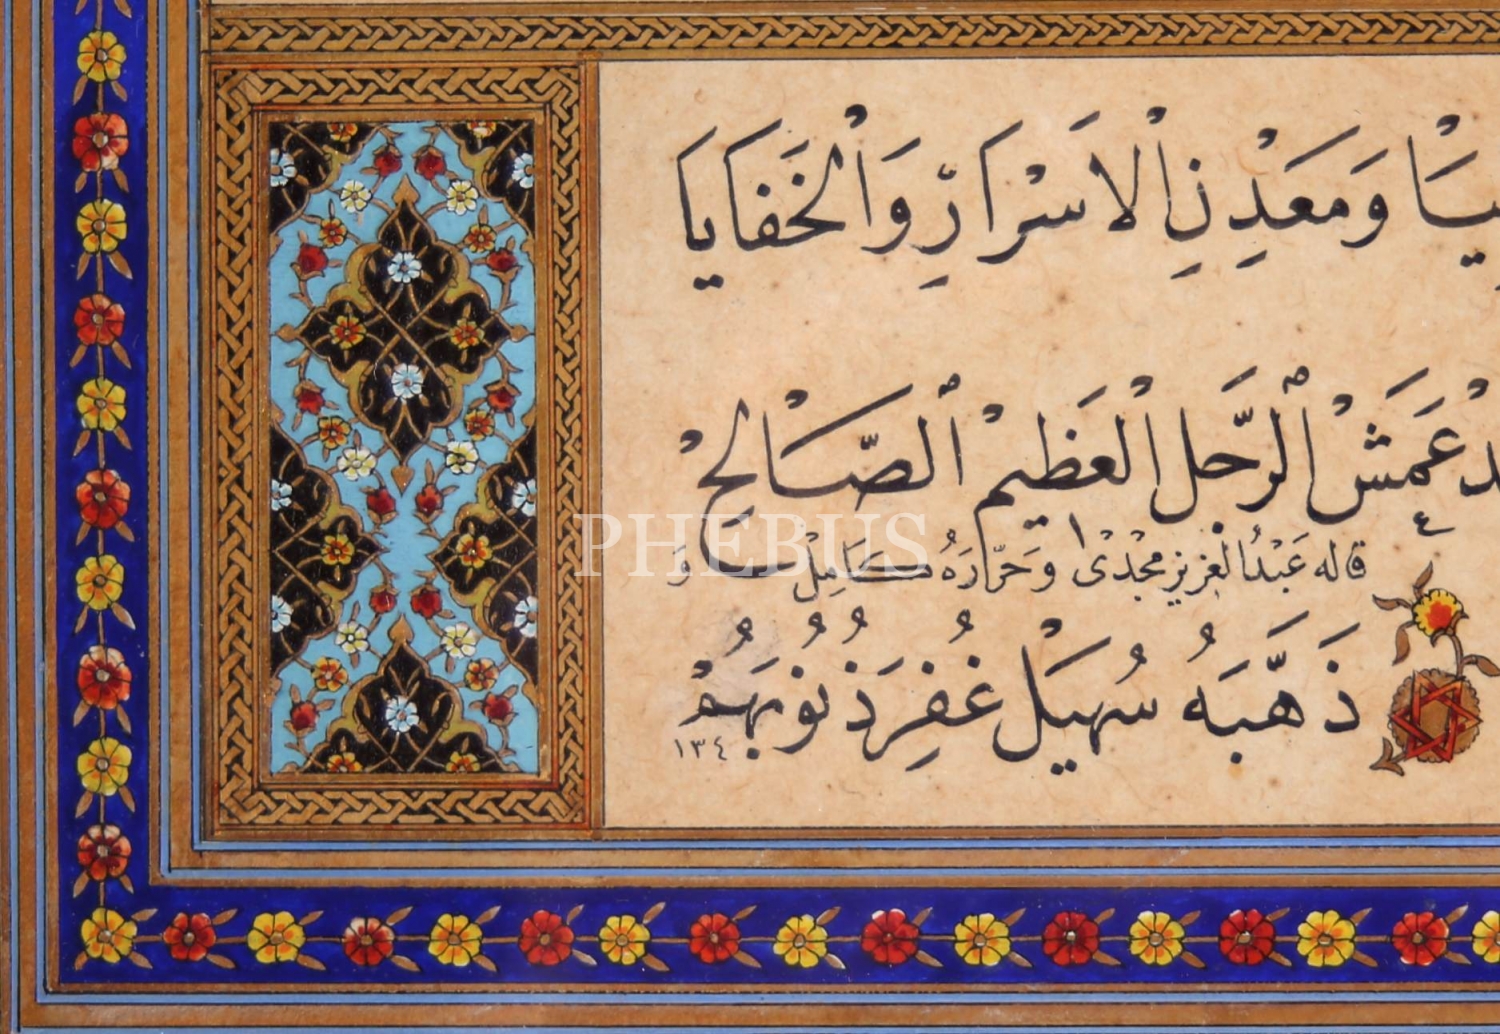 وَمَعَدْنِ اِلْاَسْرَارِّ وَالْخَفَايَا
عَمَشْ الرَّحَل الْعَظِيمْ الصَّالِحْ
قاله عَبْدُالعزيز مجْدْى وَحَرّرَهُ كَامِلْ وَ
ذَهَّبَهُ سُهَيْل غُفِرَ ذُنُوبُهُمْ
١٣٤
PHEBUS